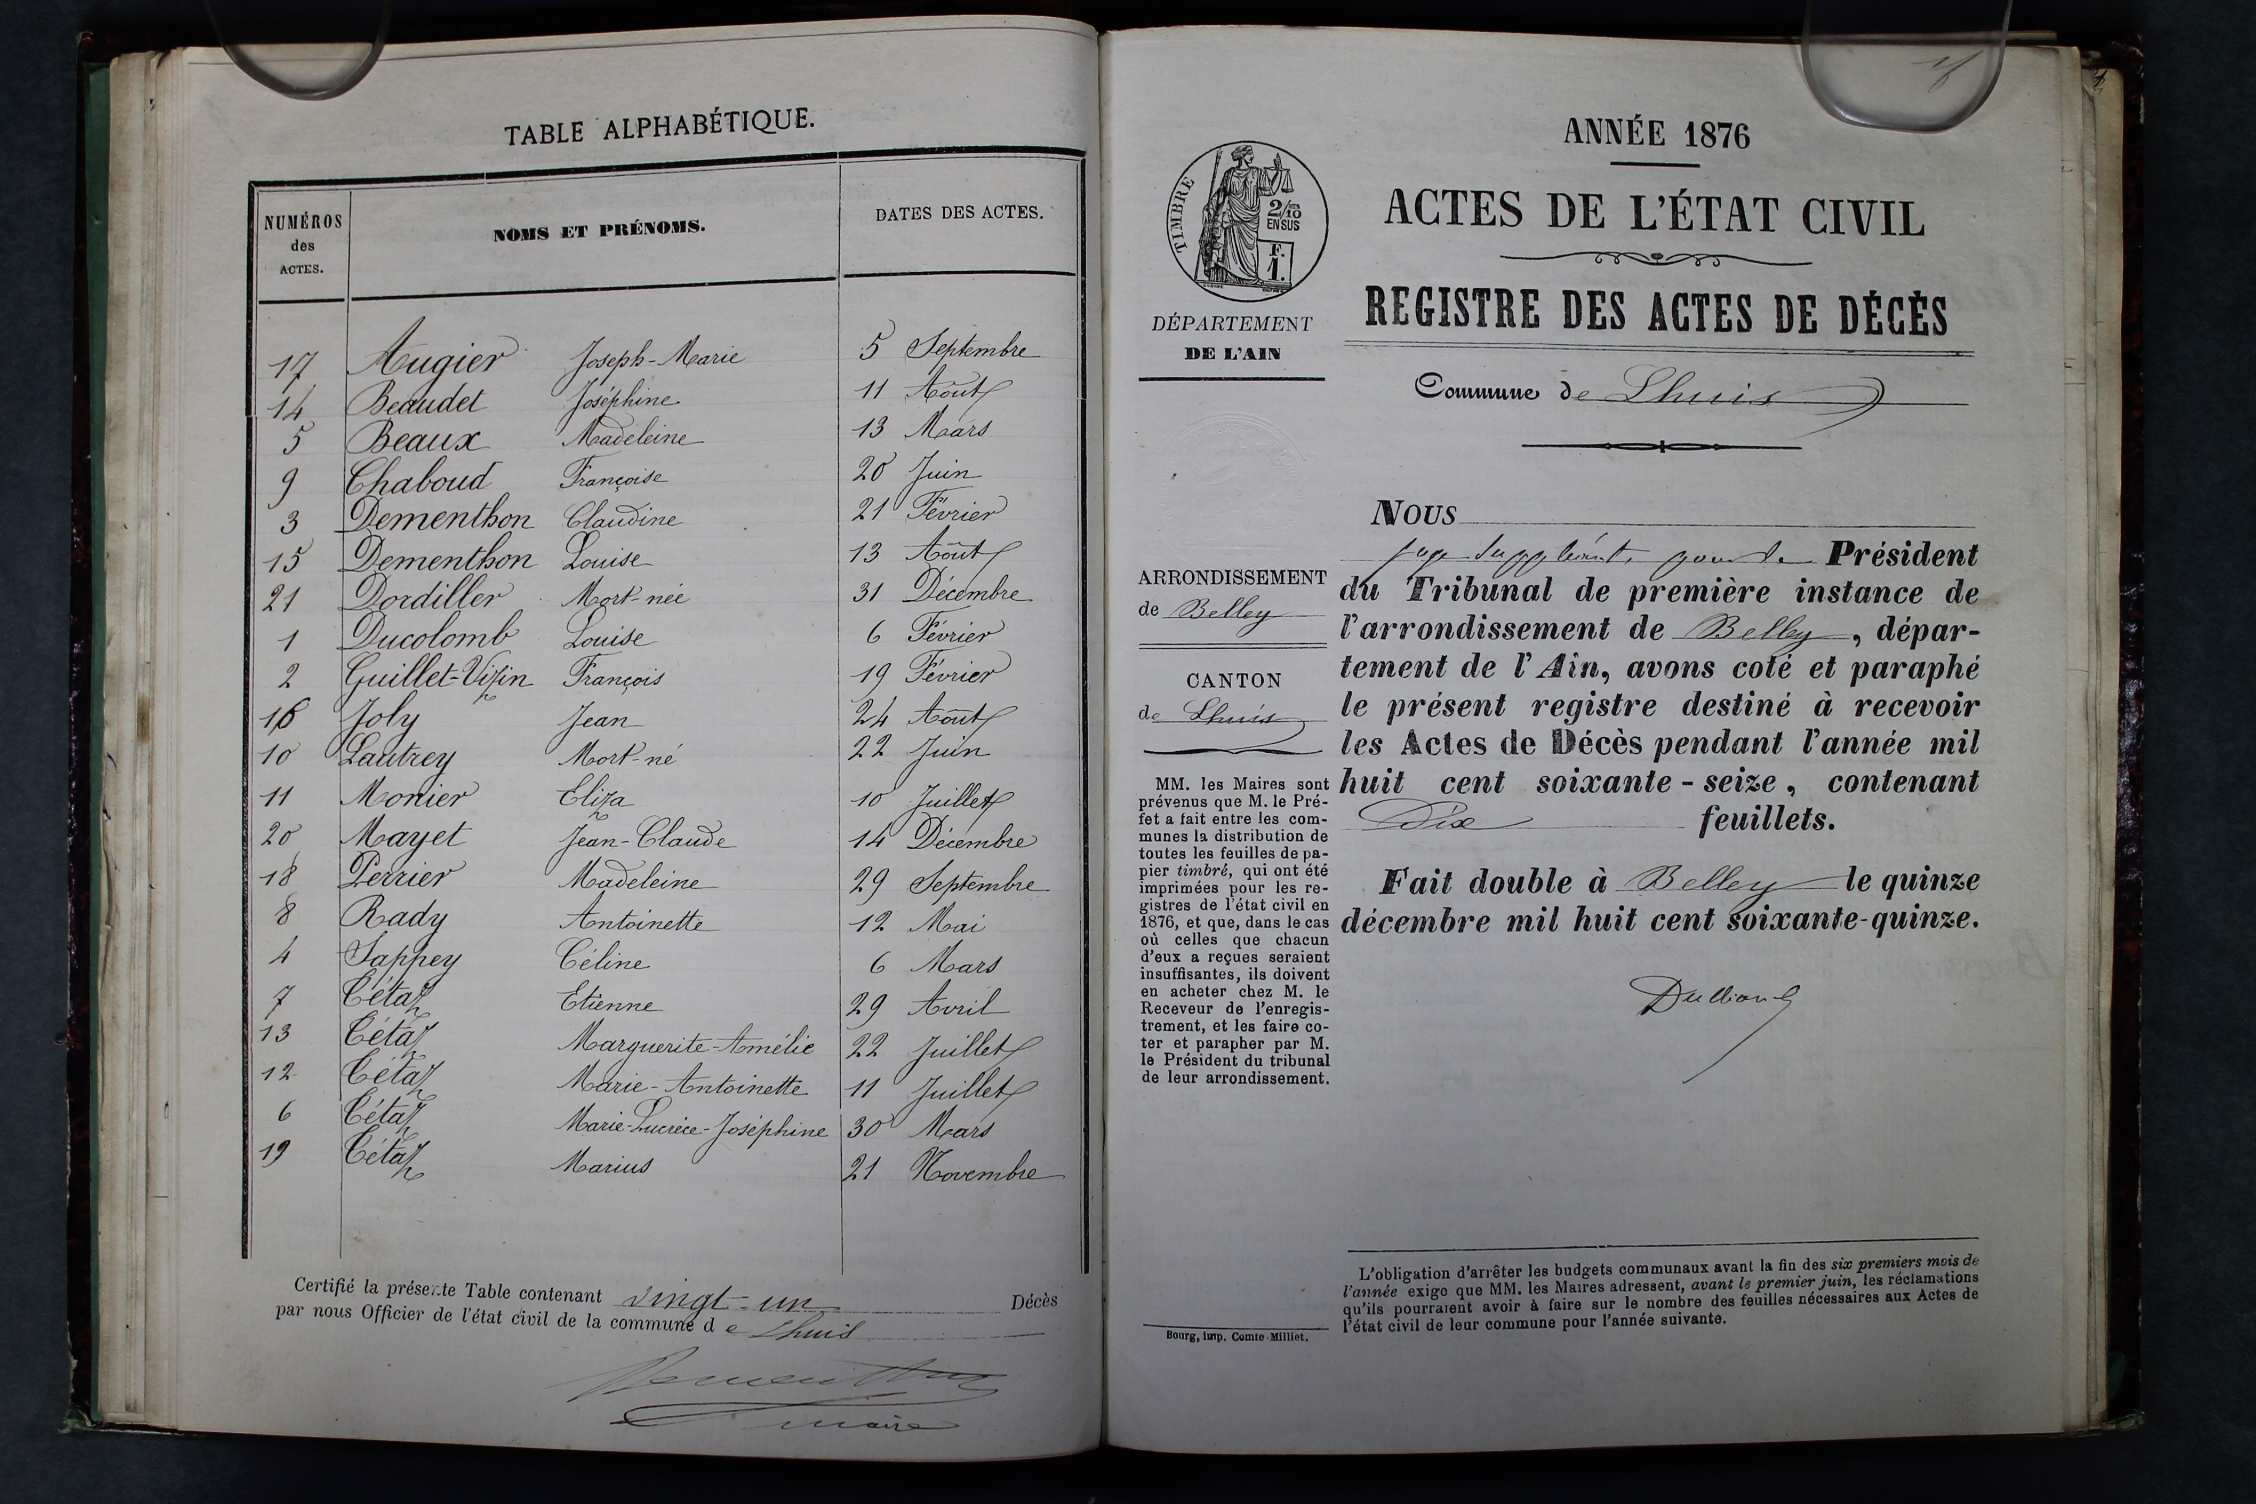 TABLE ALPHABÉTIQUE.
NUMÉROS des ACTES. NOMS ET PRÉNOMS. DATES DES ACTES.
17 Augier Joseph-Marie 5 Septembre
14 Beaudet Joséphine 11 Août
5 Beaux Madeleine 13 Mars
9 Chaboud Françoise 20 Juin
3 Dementhon Claudine 21 Février
15 Dementhon Louise 13 Août
21 Dordiller Mort-née 31 Décembre
1 Ducolomb Louise 6 Février
2 Guillet-Vizin François 19 Février
16 Joly Jean 24 Août
10 Lautrey Mort-né 22 Juin
11 Monier Eliza 10 Juillet
20 Mayet Jean-Claude 14 Décembre
18 Perrier Madeleine 29 Septembre
8 Rady Antoinette 12 Mai
4 Sappey Céline 6 Mars
7 Cétaz Etienne 29 Avril
13 Cétaz Marguerite-Amélie 22 Juillet
12 Cétaz Marie-Antoinette 11 Juillet
6 Cétaz Marie-Lucrèce-Joséphine 30 Mars
19 Cétaz Marius 21 Novembre
Certifié la présente Table contenant vingt-un Décès
par nous Officier de l'état civil de la commune de Lhuis
Dementhon
maire
ANNÉE 1876
ACTES DE L'ÉTAT CIVIL
REGISTRE DES ACTES DE DÉCÈS
Commune de Lhuis
TIMBRE
2/10 EN SUS
F. 1.
DÉPARTEMENT
DE L'AIN
ARRONDISSEMENT
de Belley
CANTON
de Lhuis
MM. les Maires sont
prévenus que M. le Pré-
fet a fait entre les com-
munes la distribution de
toutes les feuilles de pa-
pier timbré, qui ont été
imprimées pour les re-
gistres de l'état civil en
1876, et que, dans le cas
où celles que chacun
d'eux a reçues seraient
insuffisantes, ils doivent
en acheter chez M. le
Receveur de l'enregis-
trement, et les faire co-
ter et parapher par M.
le Président du tribunal
de leur arrondissement.
Bourg, imp. Comte-Milliet.
NOUS
juge suppléant, pour le Président
du Tribunal de première instance de
l'arrondissement de Belley, dépar-
tement de l'Ain, avons coté et paraphé
le présent registre destiné à recevoir
les Actes de Décès pendant l'année mil
huit cent soixante-seize, contenant
Dix feuillets.
Fait double à Belley le quinze
décembre mil huit cent soixante-quinze.
L'obligation d'arrêter les budgets communaux avant la fin des six premiers mois de
l'année exige que MM. les Maires adressent, avant le premier juin, les réclamations
qu'ils pourraient avoir à faire sur le nombre des feuilles nécessaires aux Actes de
l'état civil de leur commune pour l'année suivante.